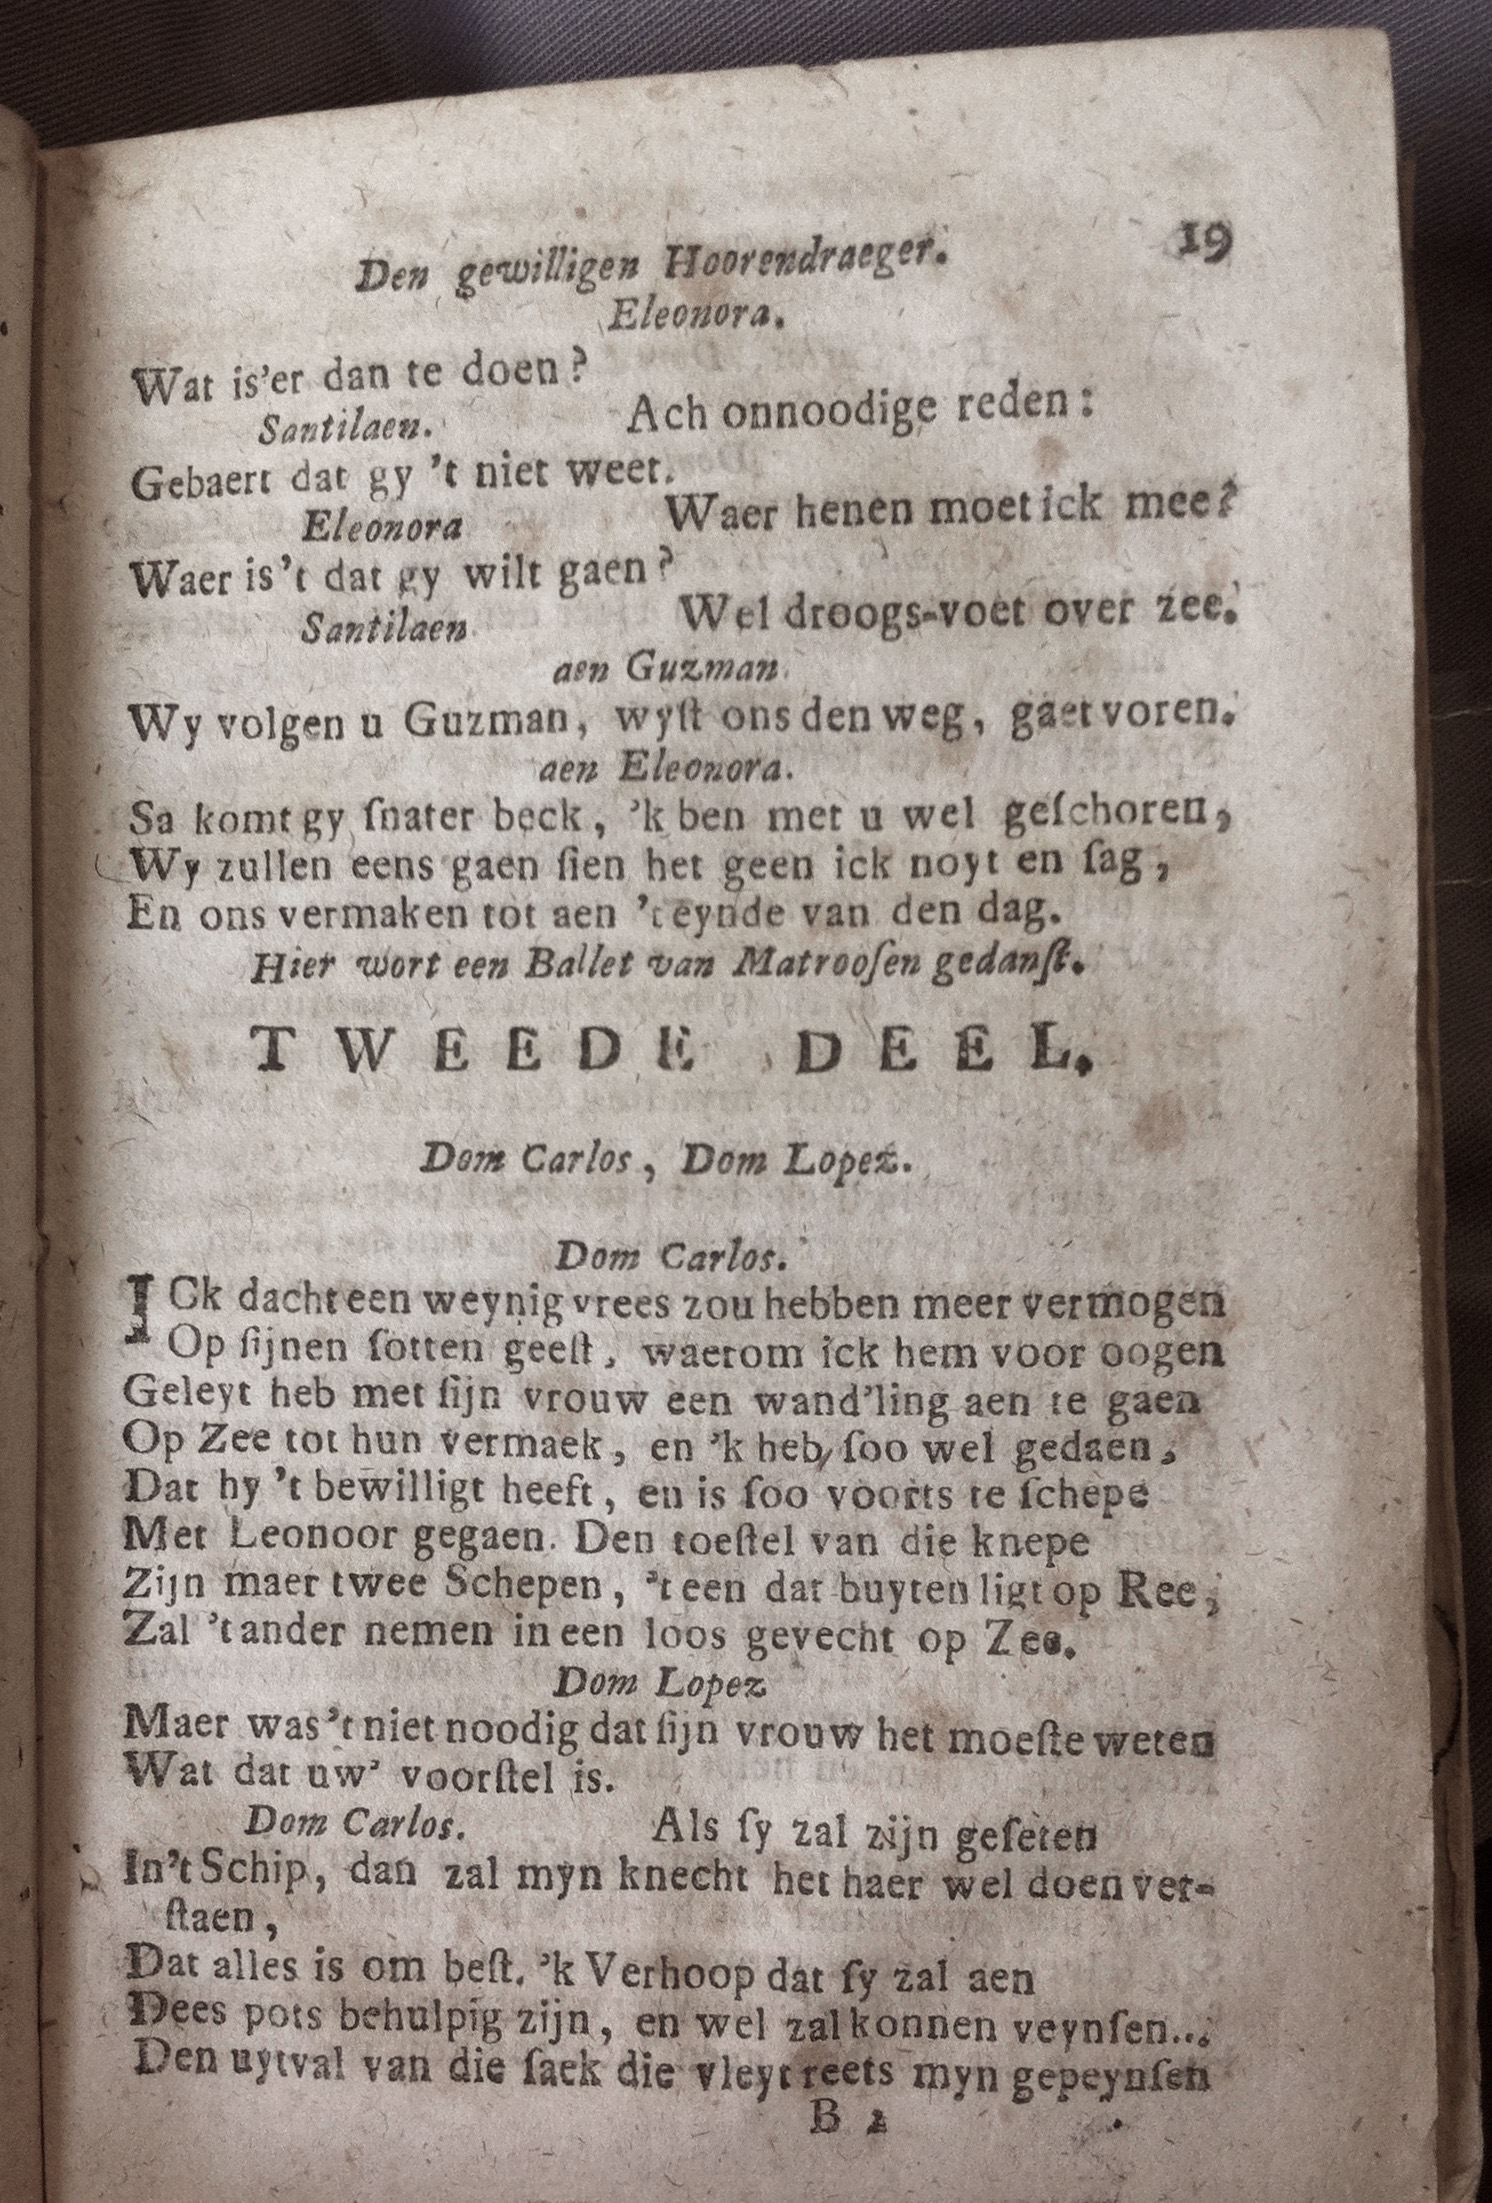 Den gewilligen Hoorendraeger. 19
Eleonora.
Wat is'er dan te doen?
Santilaen. Ach onnoodige reden:
Gebaert dat gy 't niet weet.
Eleonora Waer henen moet ick mee?
Waer is't dat gy wilt gaen?
Santilaen Wel droogs-voet over zee.
aen Guzman.
Wy volgen u Guzman, wyſt ons den weg, gaet voren.
aen Eleonora.
Sa komt gy ſnater beck, 'k ben met u wel geſchoren,
Wy zullen eens gaen ſien het geen ick noyt en ſag,
En ons vermaken tot aen 't eynde van den dag.
Hier wort een Ballet van Matrooſen gedanſt.
TWEEDE DEEL.
Dom Carlos, Dom Lopez.
Dom Carlos.
ICk dacht een weynig vrees zou hebben meer vermogen
Op ſijnen ſotten geeſt, waerom ick hem voor oogen
Geleyt heb met ſijn vrouw een wand'ling aen te gaen
Op Zee tot hun vermaek, en 'k heb ſoo wel gedaen,
Dat hy 't bewilligt heeft, en is ſoo voorts te ſchepe
Met Leonoor gegaen. Den toeſtel van die knepe
Zijn maer twee Schepen, 't een dat buyten ligt op Ree,
Zal 't ander nemen in een loos gevecht op Zee.
Dom Lopez
Maer was 't niet noodig dat ſijn vrouw het moeſte weten
Wat dat uw' voorſtel is.
Dom Carlos. Als ſy zal zijn geſeten
In't Schip, dan zal myn knecht het haer wel doen ver-
ſtaen,
Dat alles is om beſt. 'k Verhoop dat ſy zal aen
Dees pots behulpig zijn, en wel zal konnen veynſen...
Den uytval van die ſaek die vleyt reets myn gepeynſen
B 2